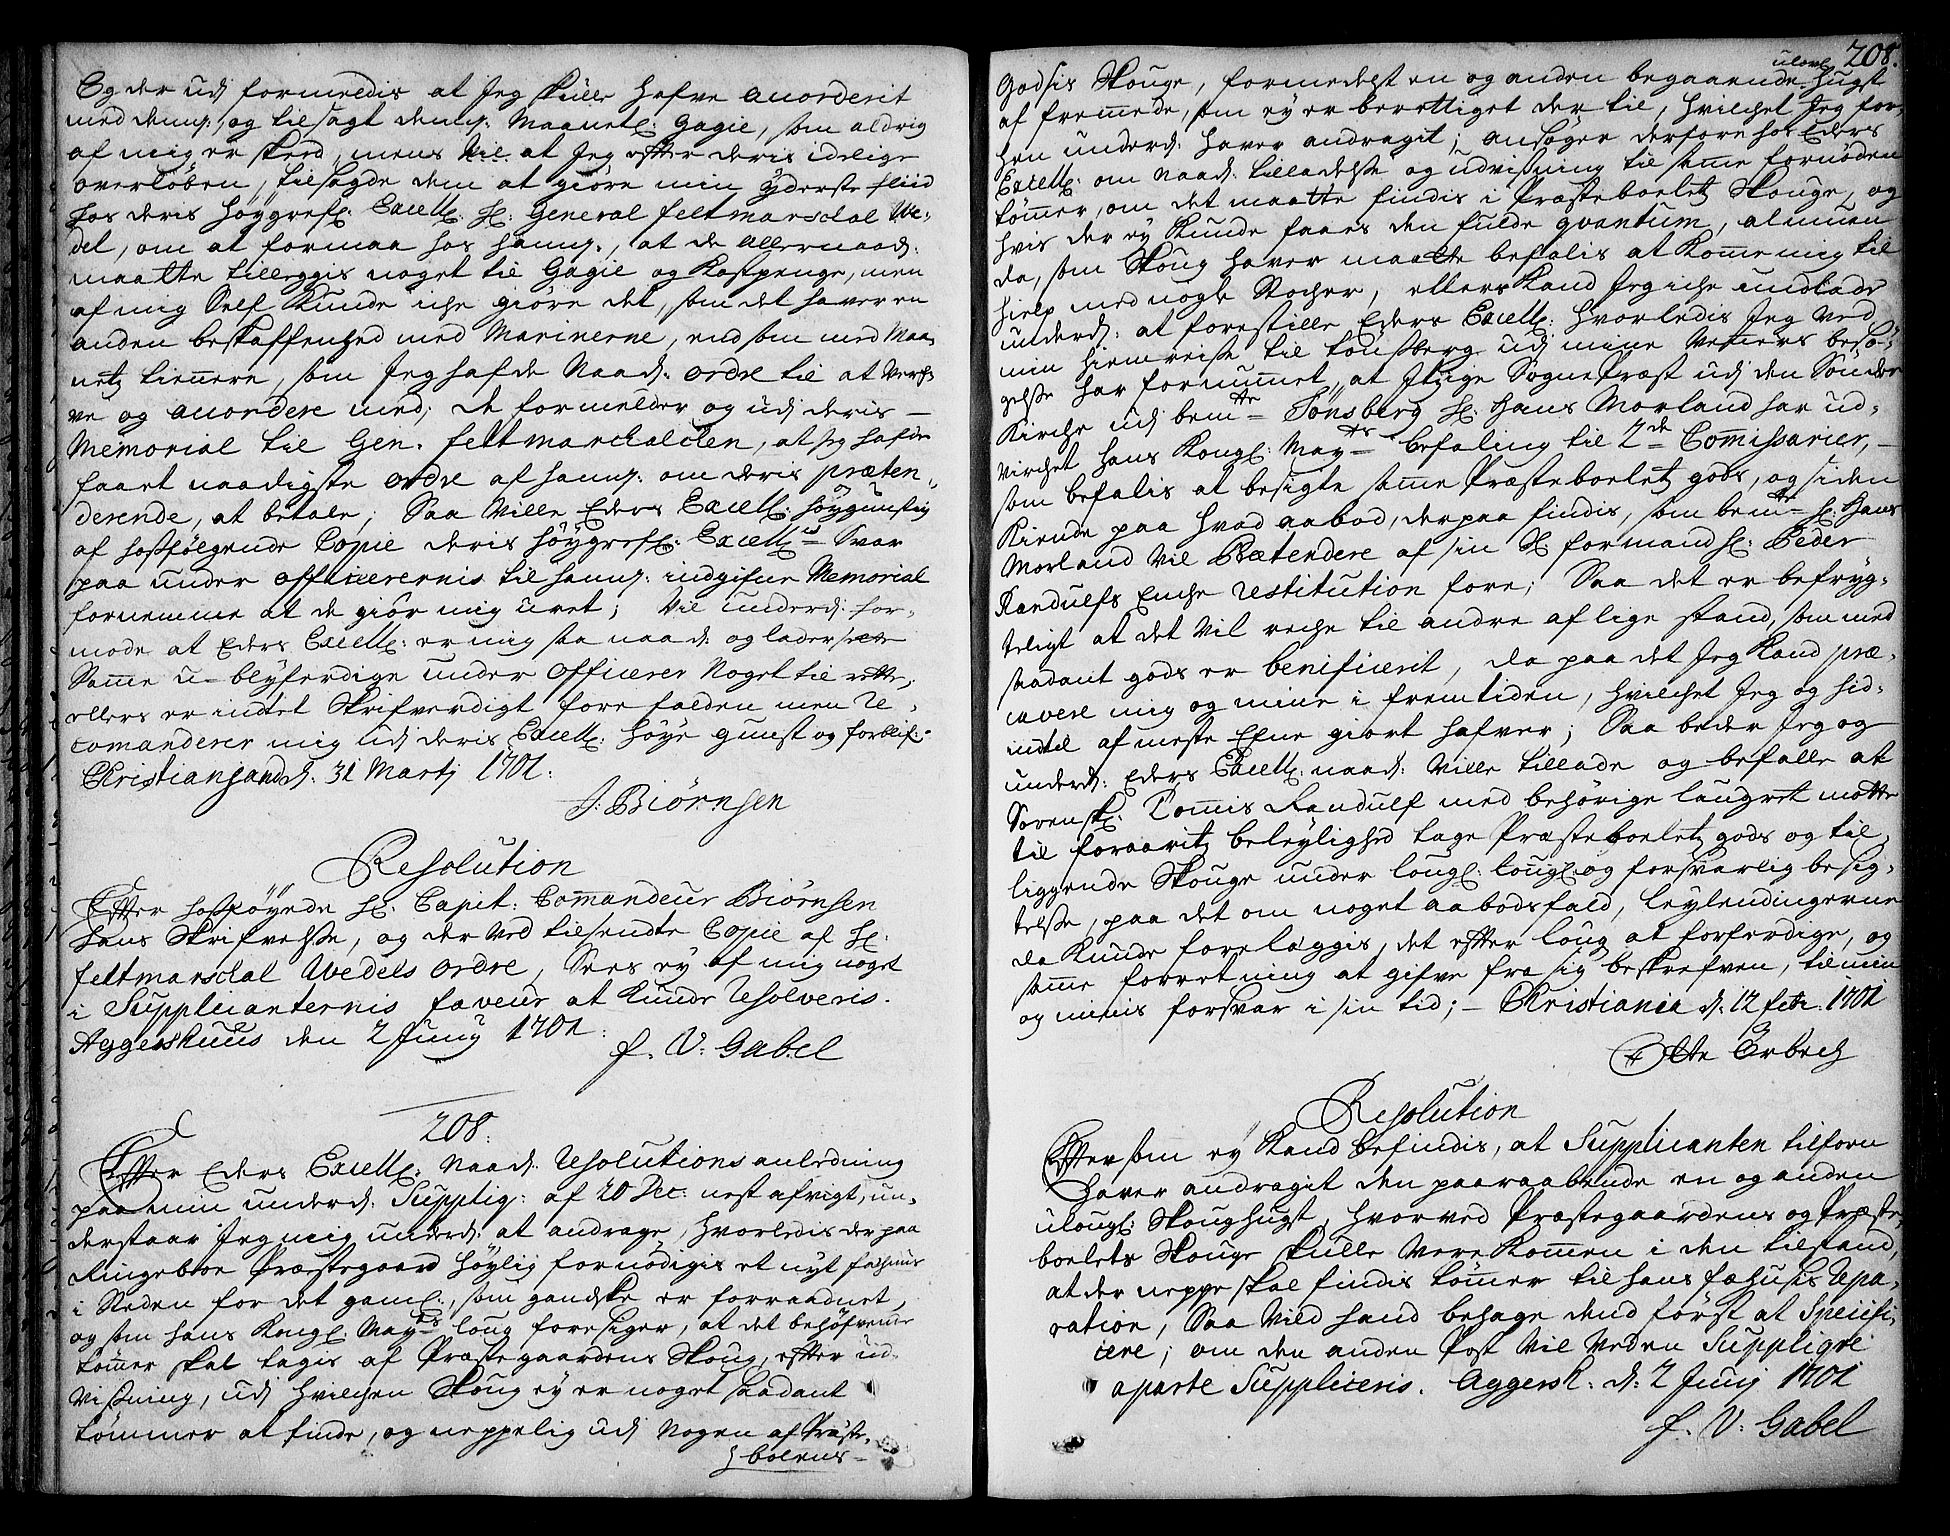 Og der udj formeldis at Jeg skulle hafve anorderit
med dennj: og tilsagt dennj: Maanetl: Gagie, som aldrig
af mig er skeed, mens vel at Jeg efter deris idelige
overløben, tilsagde dem at giøre min yderste fliid
hos deris Høygrefl: Excell: Hl: General feltmarschal We-
del, om at formaa hos hannj:, at de allernaad:
maatte tilleggis noget til Gagie og Kostpenge, men
af mig Self kunde iche giøre det, som det haver en
anden beskaffenhed med Marinerne, end som med Maa-
netz tienere, som Jeg hafde Naad: ordre til at Verf-
ve og anordere med; De formelder og udj deris
Memorial til Gen. feltmarchalchen, at jeg hafde
faaet naadigste ordre af hannj: om deris præten-
derende, at betale; Saa ville Eders Excell: høygunstig
af hosfølgende Copie deris Høygrefl: Excell: Svar
paa under officerernis til hannj: indgifne Memorial
fornemme at de giør mig uret; Vil underd: for-
mode at Eders Excell: er mig saa naad: og lader sette
Samme u-blyferdige under Officerer Noget til rette,
ellers er indtet Skrifverdigt fore falden men Re-
comanderer mig udj deris Excell: høye gunst og forblif:
Christiansand d: 31 Martj 1701:
J: Biørnsen
Resolution
Efter hosføyede Hl: Capit: Comandeur Biørnsen
hans Skrifvelse, og der ved tilsendte Copie af Hl:
feltmarschal Wedels ordre, Sees ey af mig noget
i Supplicanternis faveur at kunde Resolveris.
Aggershuus den 2 Junij 1701:
f. V. Gabel
208.
Efter Eders Excell: Naad: Resolutions anledning
paa min underd: Supplig: af 20 Dec: nest afvigt, un-
derstaar Jeg mig underd: at andrage, hvorledis der paa
Ringeboe Præstegaard høylig fornødigis et nyt fæhuus
i Steden for det gaml:, som gandske er forraadnet,
og som hans Kongl: Mayts loug foresiger, at det behøfvende
tømmer skal tagis af Præstegaardens Skoug, efter ud-
viisning, udj hvilchen Skoug ey er noget saadant
tømmer at finde, og neppelig udj Nogen af Præste-
boelens
208.
ulovl:
Godsis Skouge, formedelst en og anden begaaende hugst
af fremmede, som ey er berettiget der til, hvilchet Jeg for-
hen underd: haver andragit; ansøger derfore hos Eders
Excell: om naad: tilladelse og udviisning til samme fornøden
tømmer, om det maatte findis i Præsteboeletz Skouge, og
hvis der ey kunde faaes den fulde qvantum, almuen
da, som Skoug haver maatte befalis at komme mig til
hielp med nogle Stocher, ellers kand Jeg iche undlade
underd: at forestille Eders Excell: hvorledis Jeg ved
min hiemreise til Tønsberg udj mine Venners besø-
gelse har fornummet, at Itzige Sognepræst udj den Sønder
Kirche udj bemte Tønsberg Hl: Hans Morland har ud-
virchet hans Kongl: Mayts befaling til 2de Commissarier,
som befalis at besigte samme Præsteboeletz gods, og siden
Kiende paa hvad aabod, derpaa findis, som bemte Hl: Hans
Morland vil Prætendere af sin Sl formand Hl: Peder
Randulfs Enche restitution fore; Saa det er befryg-
teligt at det vil reche til andre af lige stand, som med
saadant gods er benificerit, da paa det Jeg kand præ-
cavere mig og mine i fremtiden, hvilchet Jeg og hid-
indtil af meste Efne giort hafver; Saa beder Jeg og
underd: Eders Excell: naad: ville tillade og befalle at
Sorenskr: Tomis Randulf med behørige laugret motte
til foraaritz beleylighed tage Præsteboeletz gods og til-
liggende Skouge under lougl: lougl: og forsvarlig besig-
telse, paa det om noget aabodsfald, leylendingerne
da kunde foreleggis, det efter loug at forferdige, og
samme forretning at gifve fra sig beskrefven, til min
og minis forsvar i sin tid; Christiania d: 12 febr. 1701
Otte Orbech
Resolution
Efter som ey kand befindis, at Supplicanten tilforn
haver andragit den paaraabende en og anden
ulougl: Skoughugst, hvorved Præstegaardens og Præste-
boelets Skouge skulle være kommen i den tilstand,
at der neppe skal findis tømmer til hans fæhusis Repa-
ration, Saa vild hand behage dend først at Specifi-
cere; om den anden Post vil veden Suppliqve
aparte Suppliceris. Aggersh: d: 2 Junij 1701
f. V. Gabel